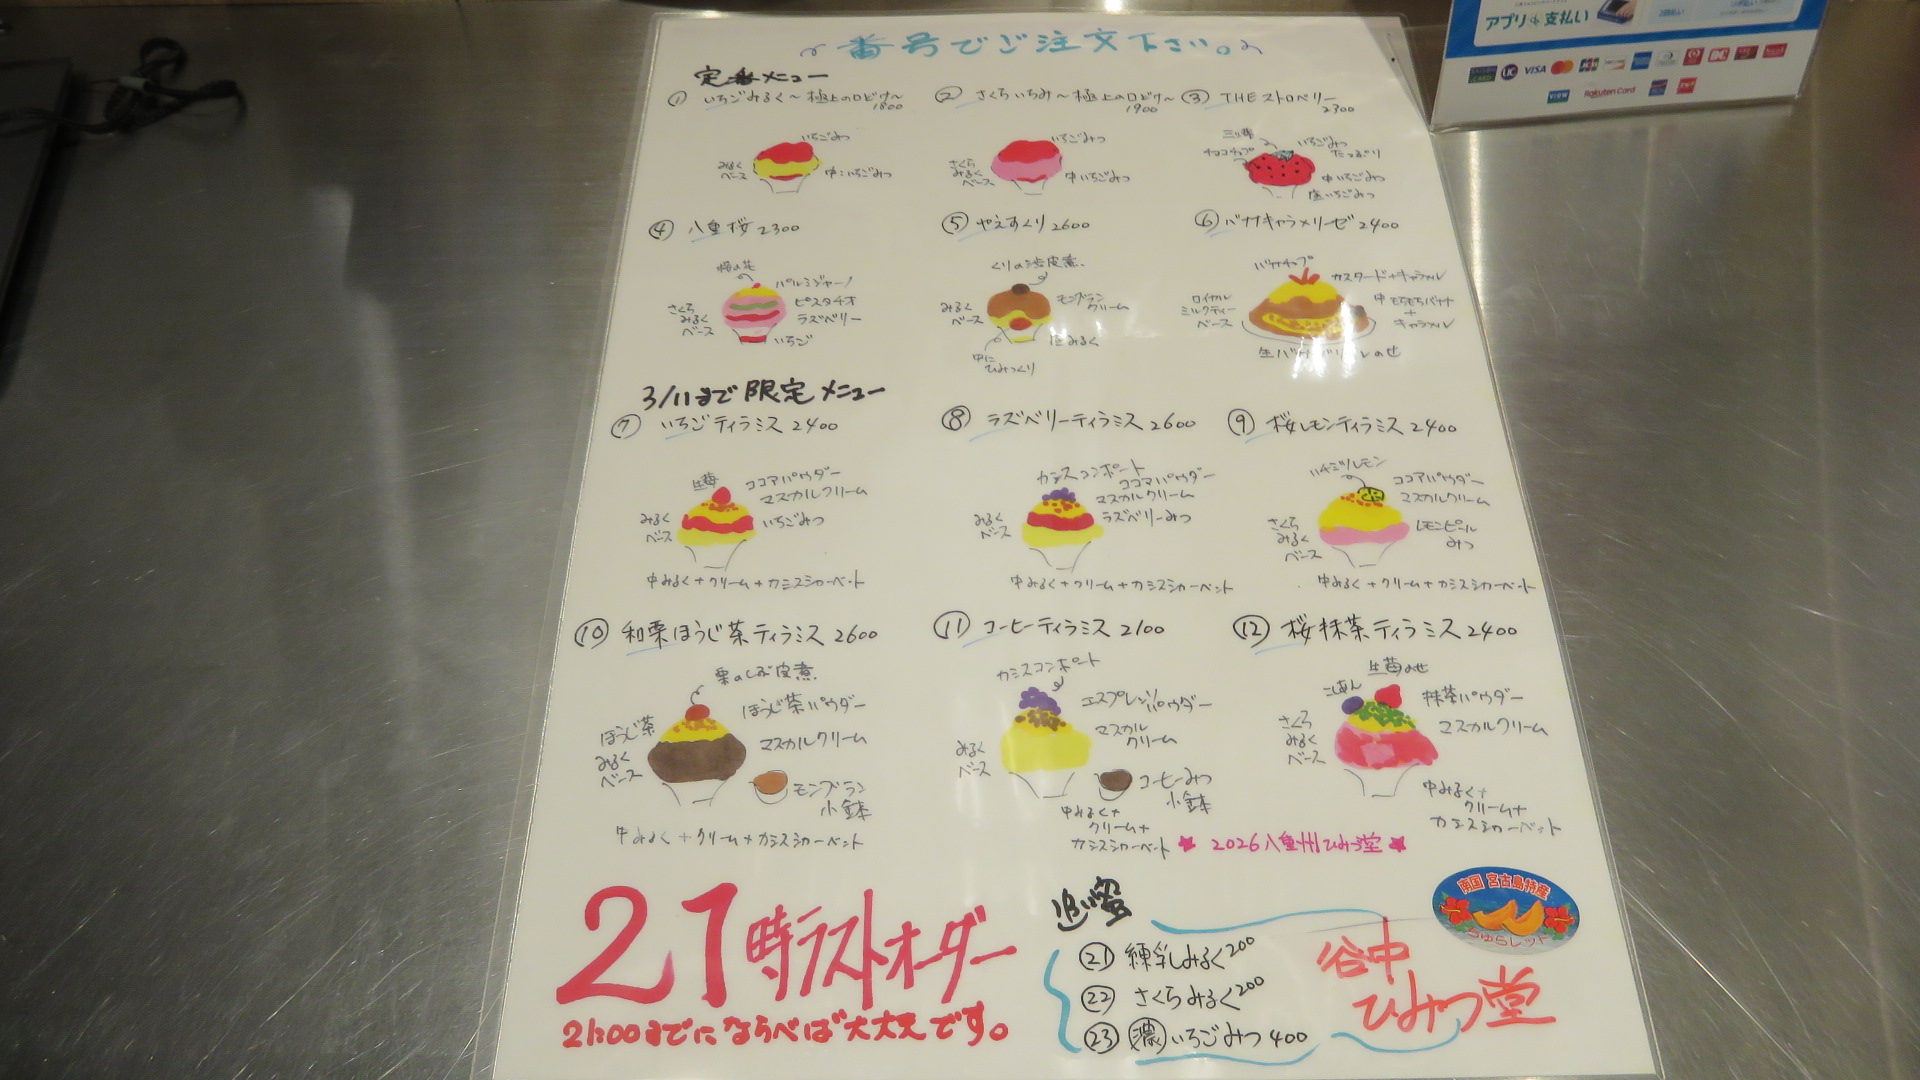 番号でご注文下さい。
アプリも支払い
VISA
VIEW
Rakuten Card
定番メニュー
① いちごみるく〜極上の口どけ〜 1800
② さくらいちみ〜極上の口どけ〜 1900
③ THEストロベリー 2300
いちごみつ
みるくベース
中:いちごみつ
いちごみつ
さくらみるくベース
中いちごみつ
チョコチップ
いちごみつ
たっぷり
中いちごみつ
底いちごみつ
④ 八重桜 2300
⑤ やえすくり 2600
⑥ バナナキャラメリーゼ 2400
桜の花
パルミジャーノ
ピスタチオ
ラズベリー
さくらみるくベース
いちご
くりの渋皮煮
モンブランクリーム
みるくベース
中に
カスタード+キャラメル
ロイヤルミルクティーベース
中 もちもちバナナ
+
キャラメル
3/11まで限定メニュー
⑦ いちごティラミス 2400
⑧ ラズベリーティラミス 2600
⑨ 桜レモンティラミス 2400
生苺
ココアパウダー
マスカルクリーム
みるくベース
いちごみつ
中みるく+クリーム+カシスシャーベット
カシスコンポート
ココアパウダー
マスカルクリーム
みるくベース
ラズベリーみつ
中みるく+クリーム+カシスシャーベット
ハチミツレモン
ココアパウダー
マスカルクリーム
さくらみるくベース
レモンピールみつ
中みるく+クリーム+カシスシャーベット
⑩ 和栗ほうじ茶ティラミス 2600
⑪ コーヒーティラミス 2100
⑫ 桜抹茶ティラミス 2400
栗のしぶ皮煮
ほうじ茶パウダー
ほうじ茶みるくベース
マスカルクリーム
モンブラン
小鉢
中みるく+クリーム+カシスシャーベット
カシスコンポート
エスプレッソパウダー
マスカルクリーム
みるくベース
コーヒーみつ
小鉢
中みるく+
クリーム+
カシスシャーベット
生苺のせ
こしあん
抹茶パウダー
さくらみるくベース
マスカルクリーム
中みるく+
クリーム+
カシスシャーベット
★ 2026八重州ひみつ堂 ★
21時ラストオーダー
21:00までにならべば大丈夫です。
追い蜜
㉑ 練乳みるく 200
㉒ さくらみるく 200
㉓ 濃いちごみつ 400
谷中
ひみつ堂
南国 宮古島特産
ちゅらレッド